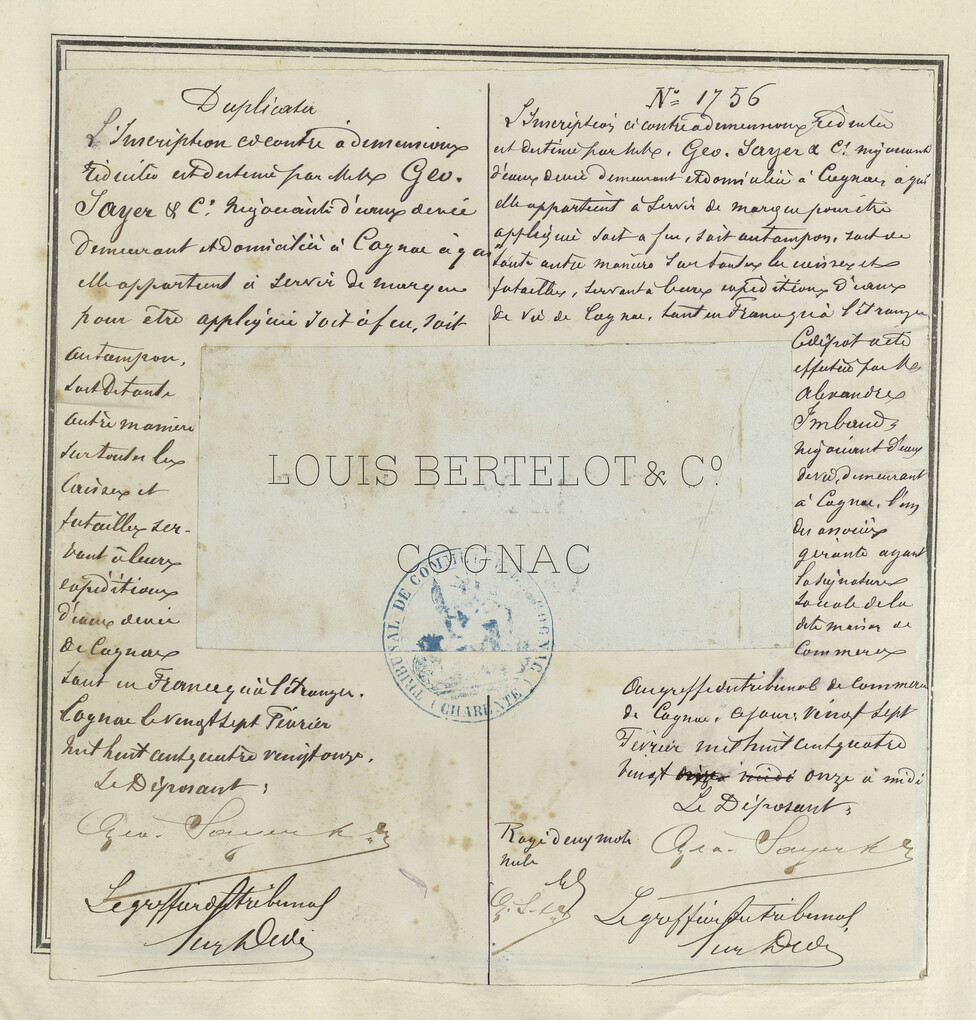 Duplicata
L'Inscription ci contre a dimensions
réduites est destinée par MM. Geo.
Sayer & Cº. Négociants d'eaux de vie
demeurant et domiciliés à Cognac à qui
elle appartient à servir de marque
pour être appliquée soit à feu, soit
au tampon,
soit de toute
autre manière
sur toutes les
Caisses et
futailles ser-
vant à leurs
expéditions
d'eaux de vie
de Cognac
tant en France qu'à l'étranger.
Cognac le vingt sept Février
mil huit cent quatre vingt onze.
Le Déposant :
Geo. Sayer & Cº
Le greffier du tribunal
Nº 1756
L'Inscription ci contre a dimensions réduites
est destinée par MM. Geo. Sayer & Cº. négociants
d'eaux de vie demeurant et domiciliés à Cognac, à qui
elle appartient à servir de marque pour être
appliquée soit à feu, soit au tampon, soit de
toute autre manière sur toutes les caisses et
futailles, servant à leurs expéditions d'eaux
de vie de Cognac, tant en France qu'à l'étranger
Ce dépôt a été
effectué par M.
Alexandre
Imbaud,
négociant d'eaux
de vie, demeurant
à Cognac, l'un
des associés
gérants ayant
la signature
sociale de la
dite maison de
Commerce
Au greffe du tribunal de commerce
de Cognac, ce jour, vingt sept
Février mil huit cent quatre
vingt onze midi onze à midi
Le Déposant :
Rayé deux mots
nuls
G. S. & Cº
Geo. Sayer & Cº
Le greffier du tribunal
LOUIS BERTELOT & Cº.
COGNAC
TRIBUNAL DE COMMERCE DE COGNAC
(CHARENTE)